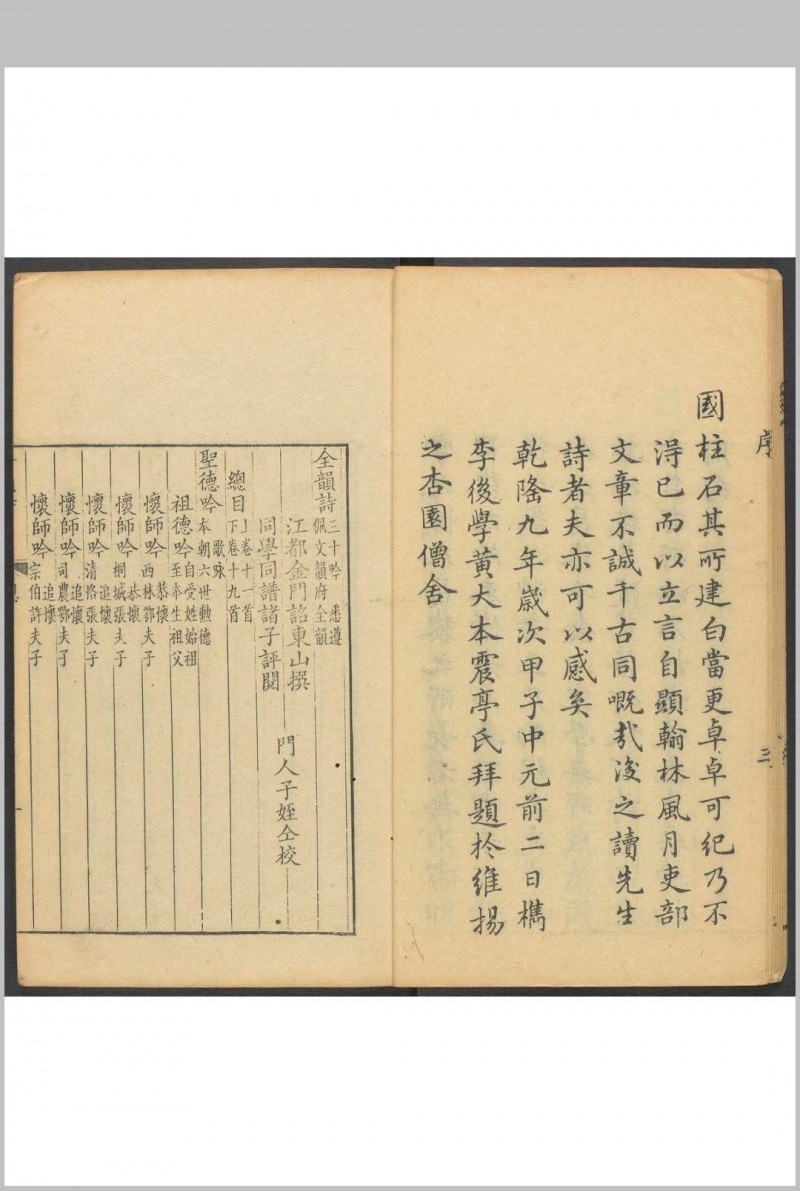 序
三
國柱石其所建白當更卓卓可紀乃不
淂已而以立言自顯翰林風月吏部
文章不誠千古同嘅㢤後之讀先生
詩者夫亦可以感矣
乾隆九年歲次甲子中元前二日檇
李後學黃大本震亭氏拜題於維揚
之杏園僧舍
全韻詩三十吟 悉遵
佩文韻府全韻
江都金門詔東山撰
同學同譜諸子評閱
門人子姪仝校
總目上卷十一首
下卷十九首
聖德吟歌咏
本朝六世勳德
祖德吟自受姓始祖
至本生祖父
懷師吟恭懷
西林鄂夫子
懷師吟恭懷
桐城張夫子
懷師吟追懷
清恪張夫子
懷師吟追懷
司農鄂夫子
懷師吟追懷
宗伯許夫子